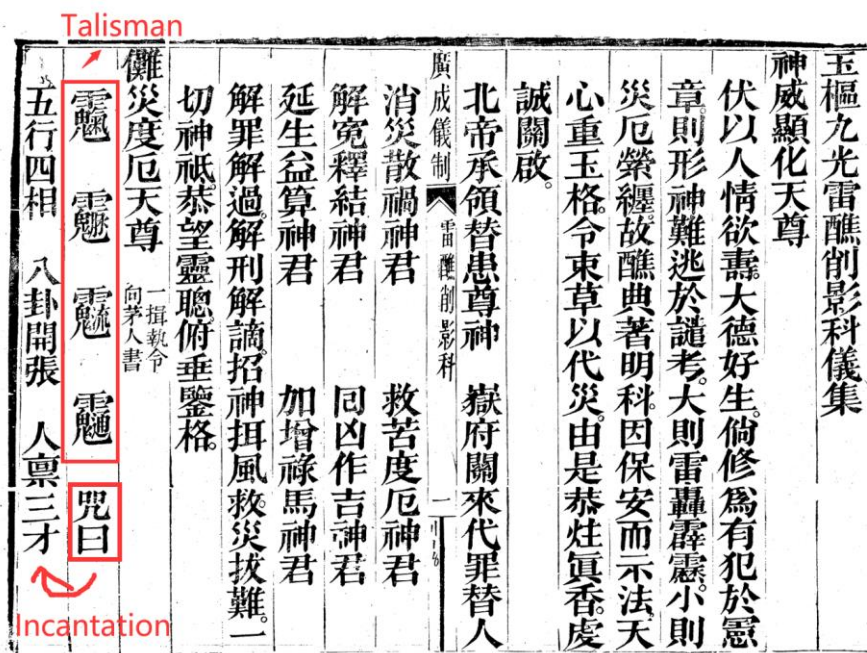 Talisman
玉樞九光雷醮削影科儀集
神威顯化天尊
伏以人情欲壽。大德好生。倘修爲有犯於憲
章。則形神難逃於譴考。大則雷轟霹靂。小則
災厄縈纏。故醮典著明科。因保安而示法天
心重玉格。令束草以代災。由是恭炷眞香。虔
誠關啟。
北帝承領替患尊神 嶽府關來代罪替人
廣成儀制 雷醮削影科 一
消災散禍神君 救苦度厄神君
解寃釋結神君 回凶作吉神君
延生益算神君 加增祿馬神君
解罪解過。解刑解謫。招神風。救災拔難。一
切神祇。恭望靈聰。俯垂鑒格。
儺災度厄天尊 一揖執令
向茅人書
咒曰
五行四相 八卦開張 人禀三才
Incantation